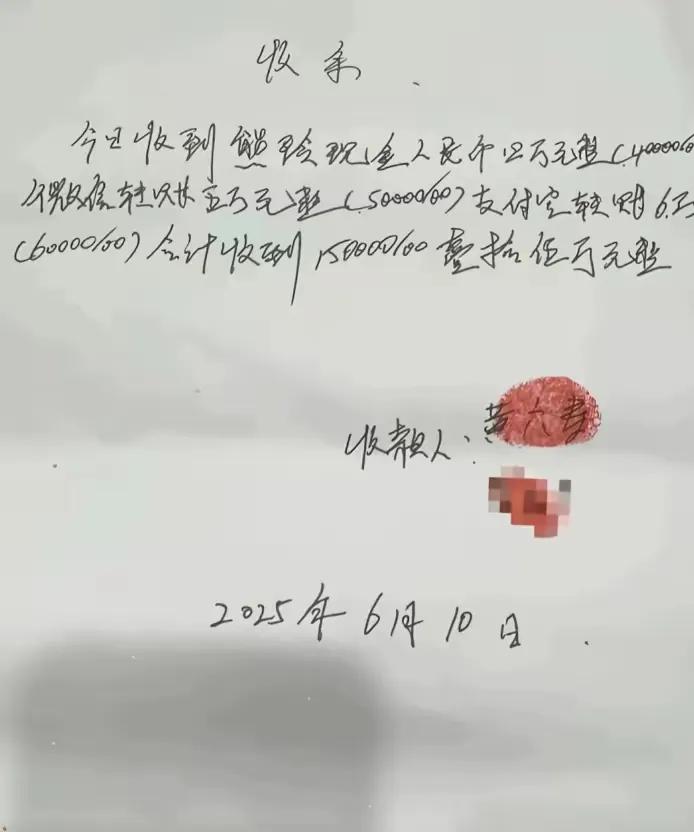 收条
今日收到熊玲现金人民币四万元整(40000/00
微信转账五万元整(50000/00)支付宝转账6万
(60000/00)合计收到150000/00壹拾伍万元整
收款人:黄六寿
2025年6月10日.